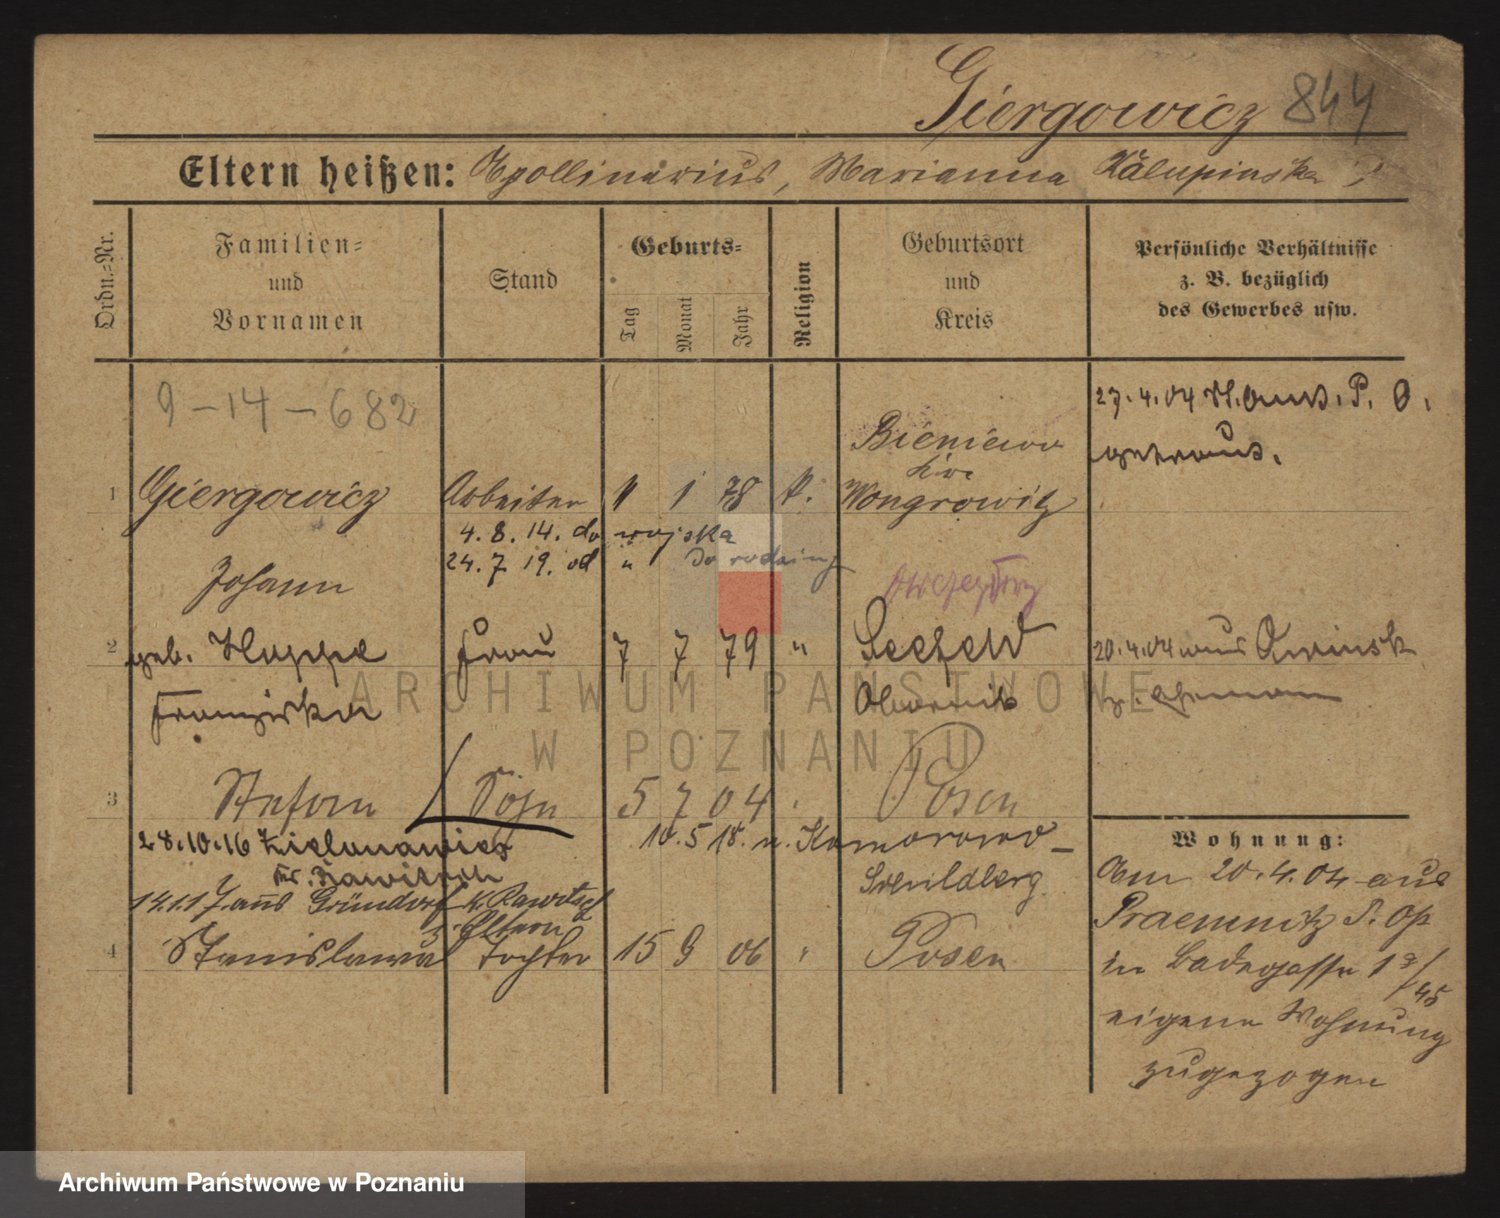 Giergowicz 844
Eltern heißen: Apollinarius, Marianna
Ordn.-Nr.
Familien-
und
Vornamen
Stand
Geburts-
Tag
Monat
Jahr
Religion
Geburtsort
und
Kreis
Persönliche Verhältnisse
z. B. bezüglich
des Gewerbes usw.
9-14-682
27.4.04 P. O.
getraut.
Bieniewo
1 Giergowicz Arbeiter 1 78 k. Wongrowitz
4.8.14. do wojska
24.7 19. od " do rodziny
Johann
2 geb. Hoppe Frau 7 7 79 " Seefeld 20.4.04 aus
Franziska Obornik
3 Stefan Sohn 5 7 04 Posen
28.10.16
10.5.18. n. Komorowo
Kr. Rawitsch
Schildberg
14.1.17 aus Gründorf K. Rawitsch
z. Eltern
4 Stanislawa Tochter 15 9 06 " Posen
Wohnung:
Am 20.4.04 aus
in Badegasse
eigene Wohnung
zugezogen
ARCHIWUM PAŃSTWOWE
W POZNANIU
Archiwum Państwowe w Poznaniu